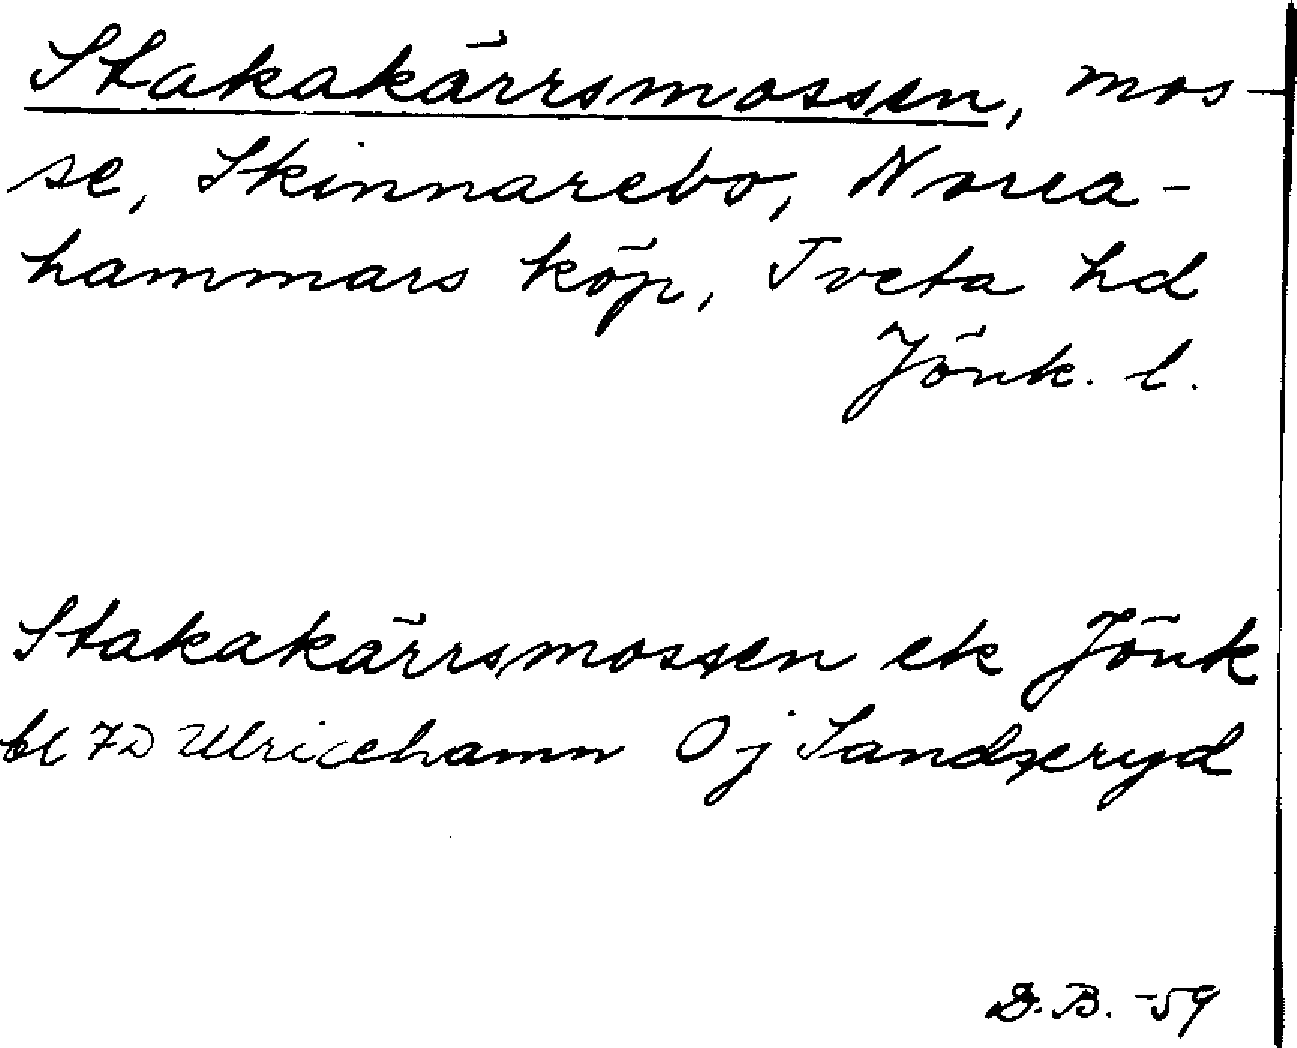 Stakakärrsmossen, mos-
se, Skinnarebo, Norra-
hammars köp, Tveta hd
Jönk. l.
Stakakärrsmossen ek Jönk
bl 7D Ulricehamn Oj Sandseryd
D.B. -59